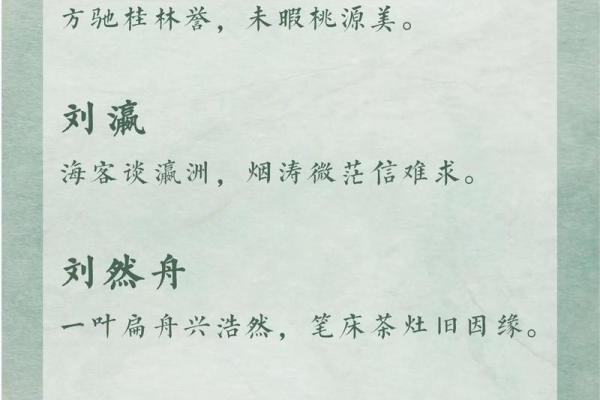 方驰桂林誉，未暇桃源美。
刘瀛
海客谈瀛洲，烟涛微茫信难求。
刘然舟
一叶扁舟兴浩然，笔床茶灶旧因缘。